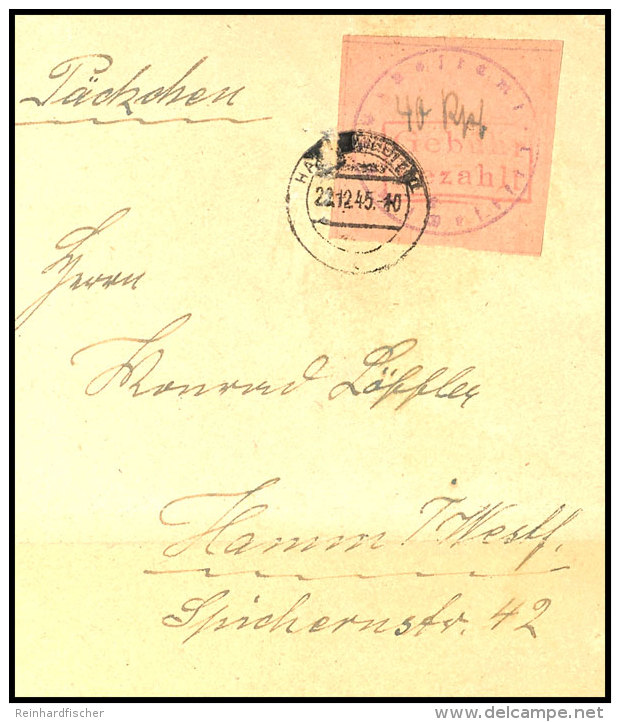 Päckchen
40 Rpf.
Gebühr
bezahlt
22.12.45.-10
Herrn
Konrad Löffler
Hamm i/Westf.
Spichernstr. 42
Reinhardfischer
www.delcampe.net